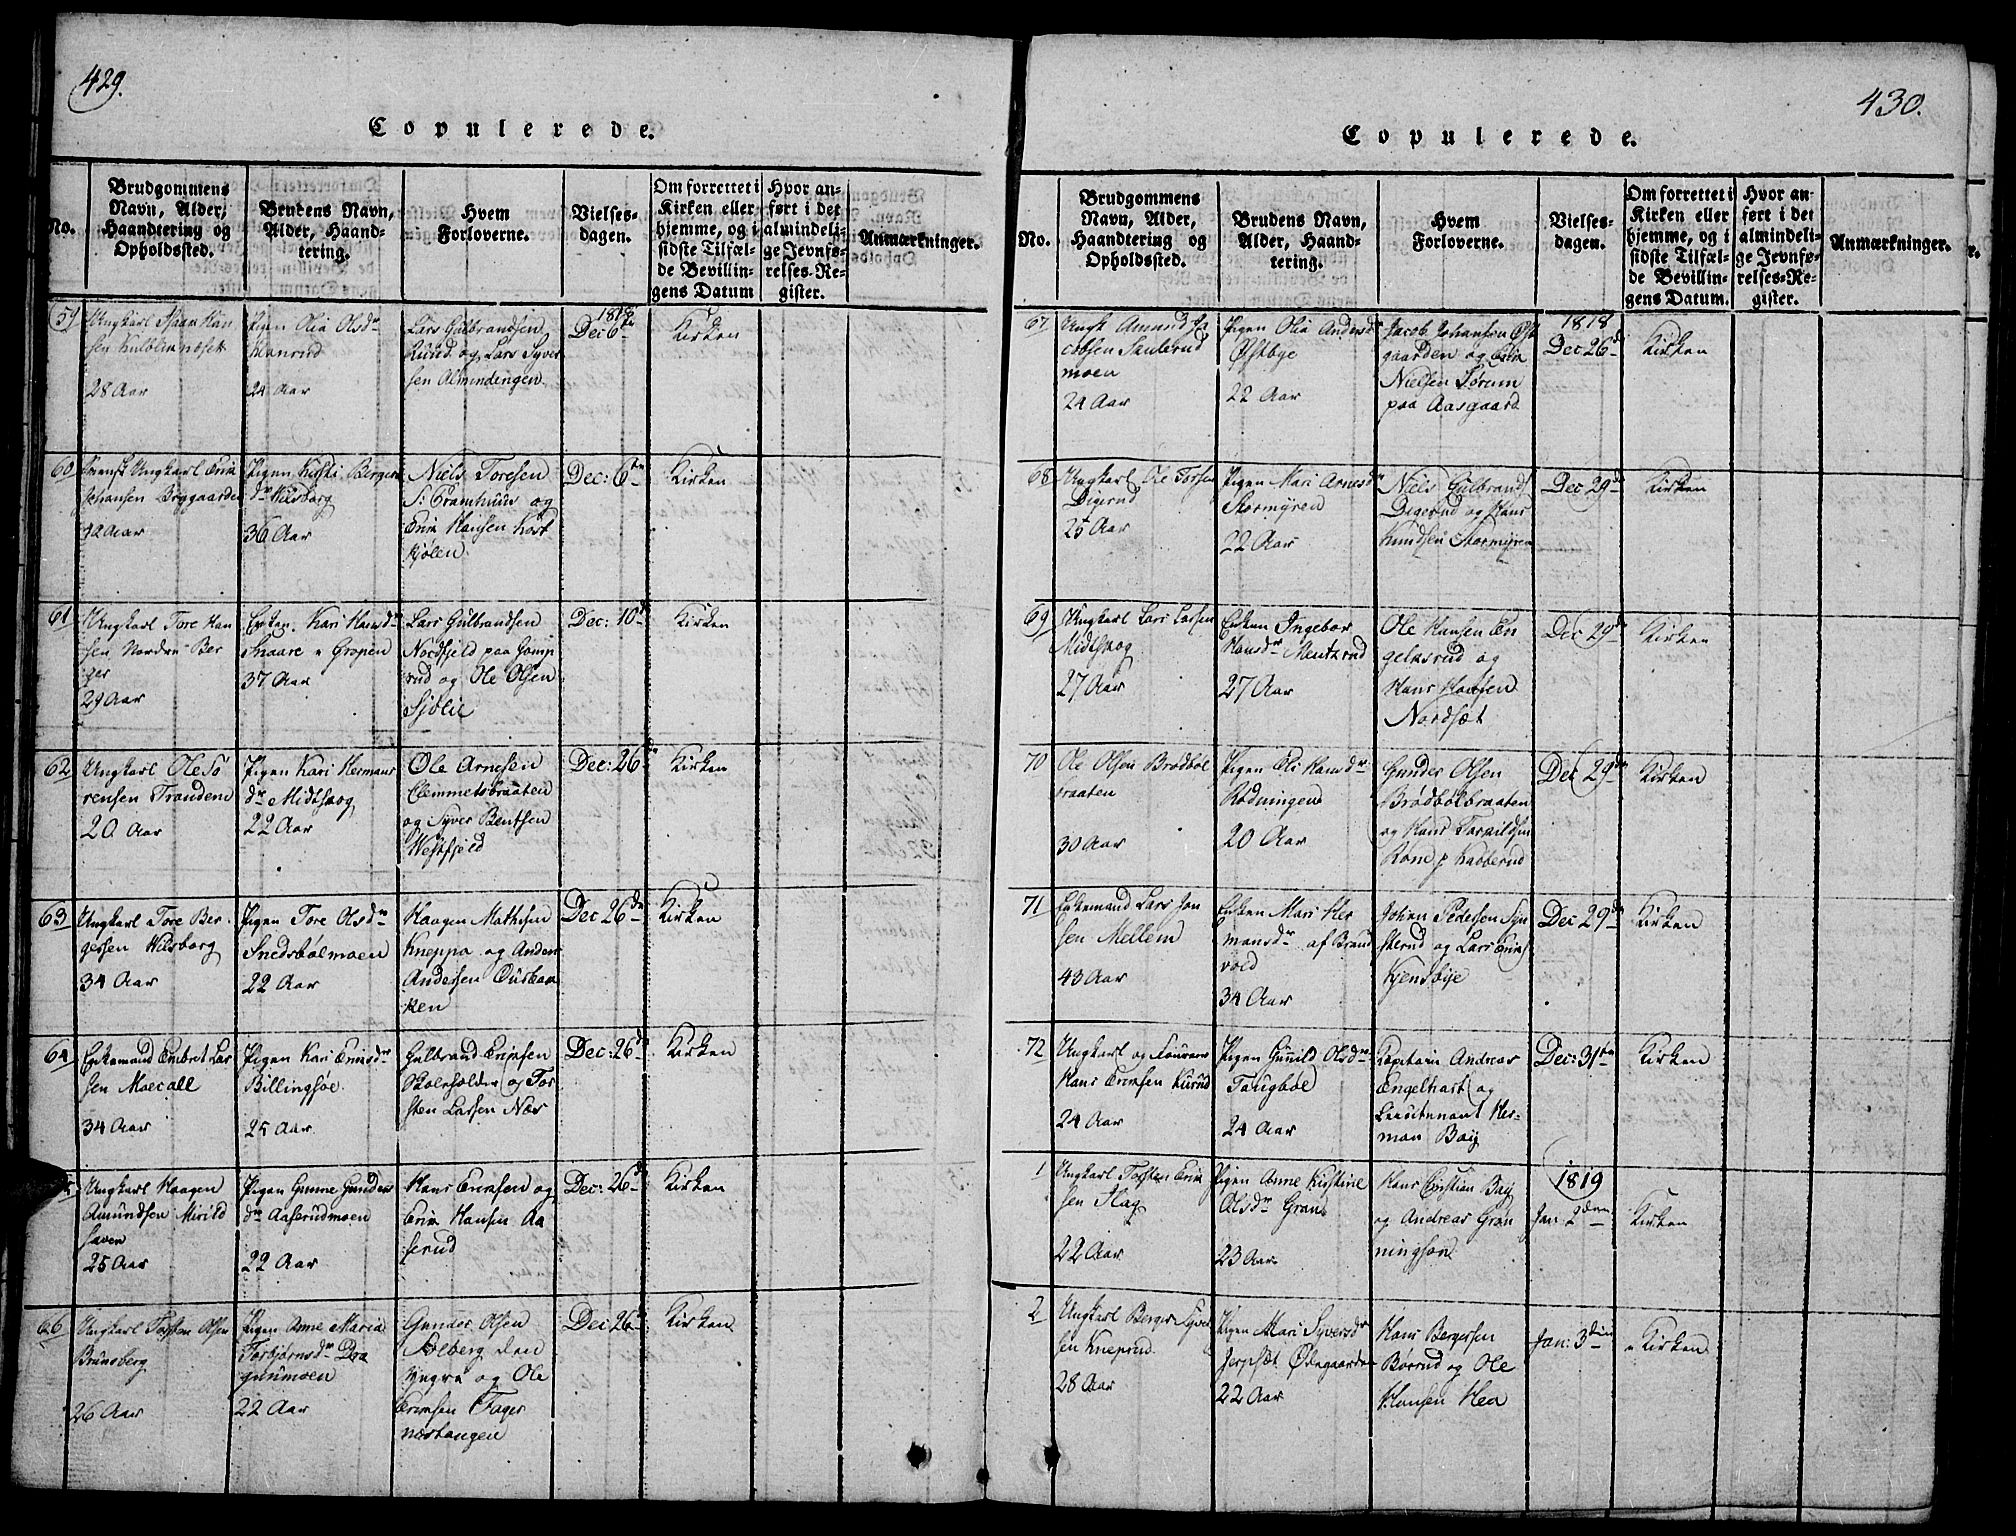 429.
Copulerede.
No.
Brudgommens
Navn, Alder,
Haandtering og
Opholdssted.
Brudens Navn,
Alder, Haand-
tering.
Hvem
Forloverne.
Vielses-
dagen.
Om forrettet i
Kirken eller
hjemme, og i
sidste Tilfæl-
de Bevillin-
gens Datum
Hvor an-
ført i det
almindeli-
ge Jevnfø-
relses-Re-
gister.
Anmærkninger.
59
Ungkarl Haan Han
sen
28 Aar
Pigen Olia Olsdr
24 Aar
Lars Gulbrandsen
Rund og Lars Syver
sen Almindengen
1818
Dec 6te
Kirken
60
Svensk Ungkarl Erik
Johansen
Pigen Kirsti Berger
dr Kilsborg
36 Aar
Niels Toresen
og
Erik Hansen
kjølen
Dec: 6te
Kirken
61
Ungkarl Tore Han
sen Nordre Ber
ger
29 Aar
Enken Kari Hansdr
Snaare Gropen
37 Aar
Lars Gulbrandsen
Nordfjeld paa Gomp
rud og Ole Olsen
Sjølie
Dec: 10de
Kirken
62
Ungkarl Ole Sö
rensen Tranden
20 Aar
Pigen Kari Hermans
dr Midtskog
22 Aar
Ole Arnesen
Clemmetsbraaten
og Syver Bentsen
Westfjeld
Dec: 26de
Kirken
63
Ungkarl Tore Ber-
gersen Kilsborg
34 Aar
Pigen Tore Olsdr
Snedsbølmoen
22 Aar
Haagen Mathisen
Kneppa og Anders
Andersen Ousbak
ken
Dec 26de
Kirken
64
Enkemand Embret Lar
sen Moecall
34 Aar
Pigen Kari Eriksdr
Billingsøe
25 Aar
Gulbrand Eriksen
Skoleholder og Tor
sten Larsen Næs
Dec: 26de
Kirken
Ungkarl Haagen
Amundsen Mirild
haven
25 Aar
Pigen Gunne Gunders
dr Aaserudmoen
22 Aar
Hans Eriksen og
Erik Hansen Aa
serud
Dec: 26de
Kirken
66
Ungkarl Torsten Olsen
Brunsberg
26 Aar
Pigen Anne Maria
Torbjørnsdr Dra
gunmoen
22 Aar
Gunder Olsen
Solberg den
yngre og Ole
Eriksen Fager
næstangen
Dec 26de
Kirken
430.
Copulerede.
No.
Brudgommens
Navn, Alder,
Haandtering og
Opholdssted.
Brudens Navn,
Alder, Haand-
tering.
Hvem
Forloverne.
Vielses-
dagen.
Om forrettet i
Kirken eller
hjemme, og i
sidste Tilfæl-
de Bevillin-
gens Datum.
Hvor an-
ført i det
almindeli-
ge Jevnfø-
relses-Re-
gister.
Anmærkninger.
67
Ungk Amund Ja
cobsen Sanderud
moen
24 Aar
Pigen Olia Andersdr
Østbye
22 Aar
Jacob Johansen Øst
gaarden og Erik
Nielsen Sørum
paa Aasgaard
1818
Dec 26de
Kirken
68
Ungkarl Ole Torsen
Digerud
25 Aar
Pigen Mari Arnesdr
Stormyren
22 Aar
Niels Gulbrands
Digerud og Hans
Knudsen Stormyren
Dec 29de
Kirken
69
Ungkarl Lars Larsen
Midtskog
27 Aar
Enken Ingebor
Hansdr Mentzrud
27 Aar
Ole Hansen En
gelaesrud og
Hans Hansen
Nordsæt
Dec 29de
Kirken
70
Ole Olsen Brødbøl
braaten
30 Aar
Pigen Eli Hansdr
Rødningen
20 Aar
Gunder Olsen
Brødbølbraaten
og Hans Taraldsen
Røne p Kabberud
Dec 29de
Kirken
71
Enkemand Lars Jon
sen Mellem
43 Aar
Enken Mari Her
mansdr af Brand
vold
34 Aar
Johan Pedersen Syn
sterud og Lars Eriks
Kjensbye
Dec 29de
Kirken
72
Ungkarl og
Hans Eriksen Kurud
24 Aar
Pigen Gunild Olsdr
Taugbøl
24 Aar
Capitain Andreas
Engelhart og
Lieutenant Her-
man Bay
Dec: 31te
Kirken
1
Ungkarl Torsten Erik
sen Flag
22 Aar
Pigen Anne Kirstine
Olsdr Gran
23 Aar
Hans Christian Bay
og Andreas Grøn
ningson
1819
Jan 2den
Kirken
2
Ungkarl Berger Syver
sen Kneprud
28 Aar
Pigen Mari Syversdr
Jerpset Ødegaarden
22 Aar
Hans Bergersen
Børrud og Ole
Hansen Hea
Jan: 3die
Kirken